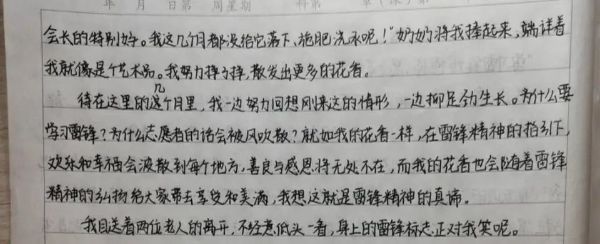 年 月 日第 周星期
会长的特别好。我这几个月都没给它落下,施肥浇水呢!"奶奶将我捧起来,端详着
我就像是个艺术品。我努力挣了挣,散发出更多的花香。
待在这里的这几个月里,我一边努力回想刚来这的情形,一边抑足劲生长。为什么要
学习雷锋?为什么志愿者的话会被风吹散?就如我的花香一样,在雷锋精神的指引下,
欢乐和幸福会被散到每个地方,善良与感恩将无处不在,而我的花香也会随着雷锋
精神的弘扬给大家带去享受和美满,我想这就是雷锋精神的真谛。
我目送着两位老人的离开,不经意低头一看,身上的雷锋标志正对我笑呢。